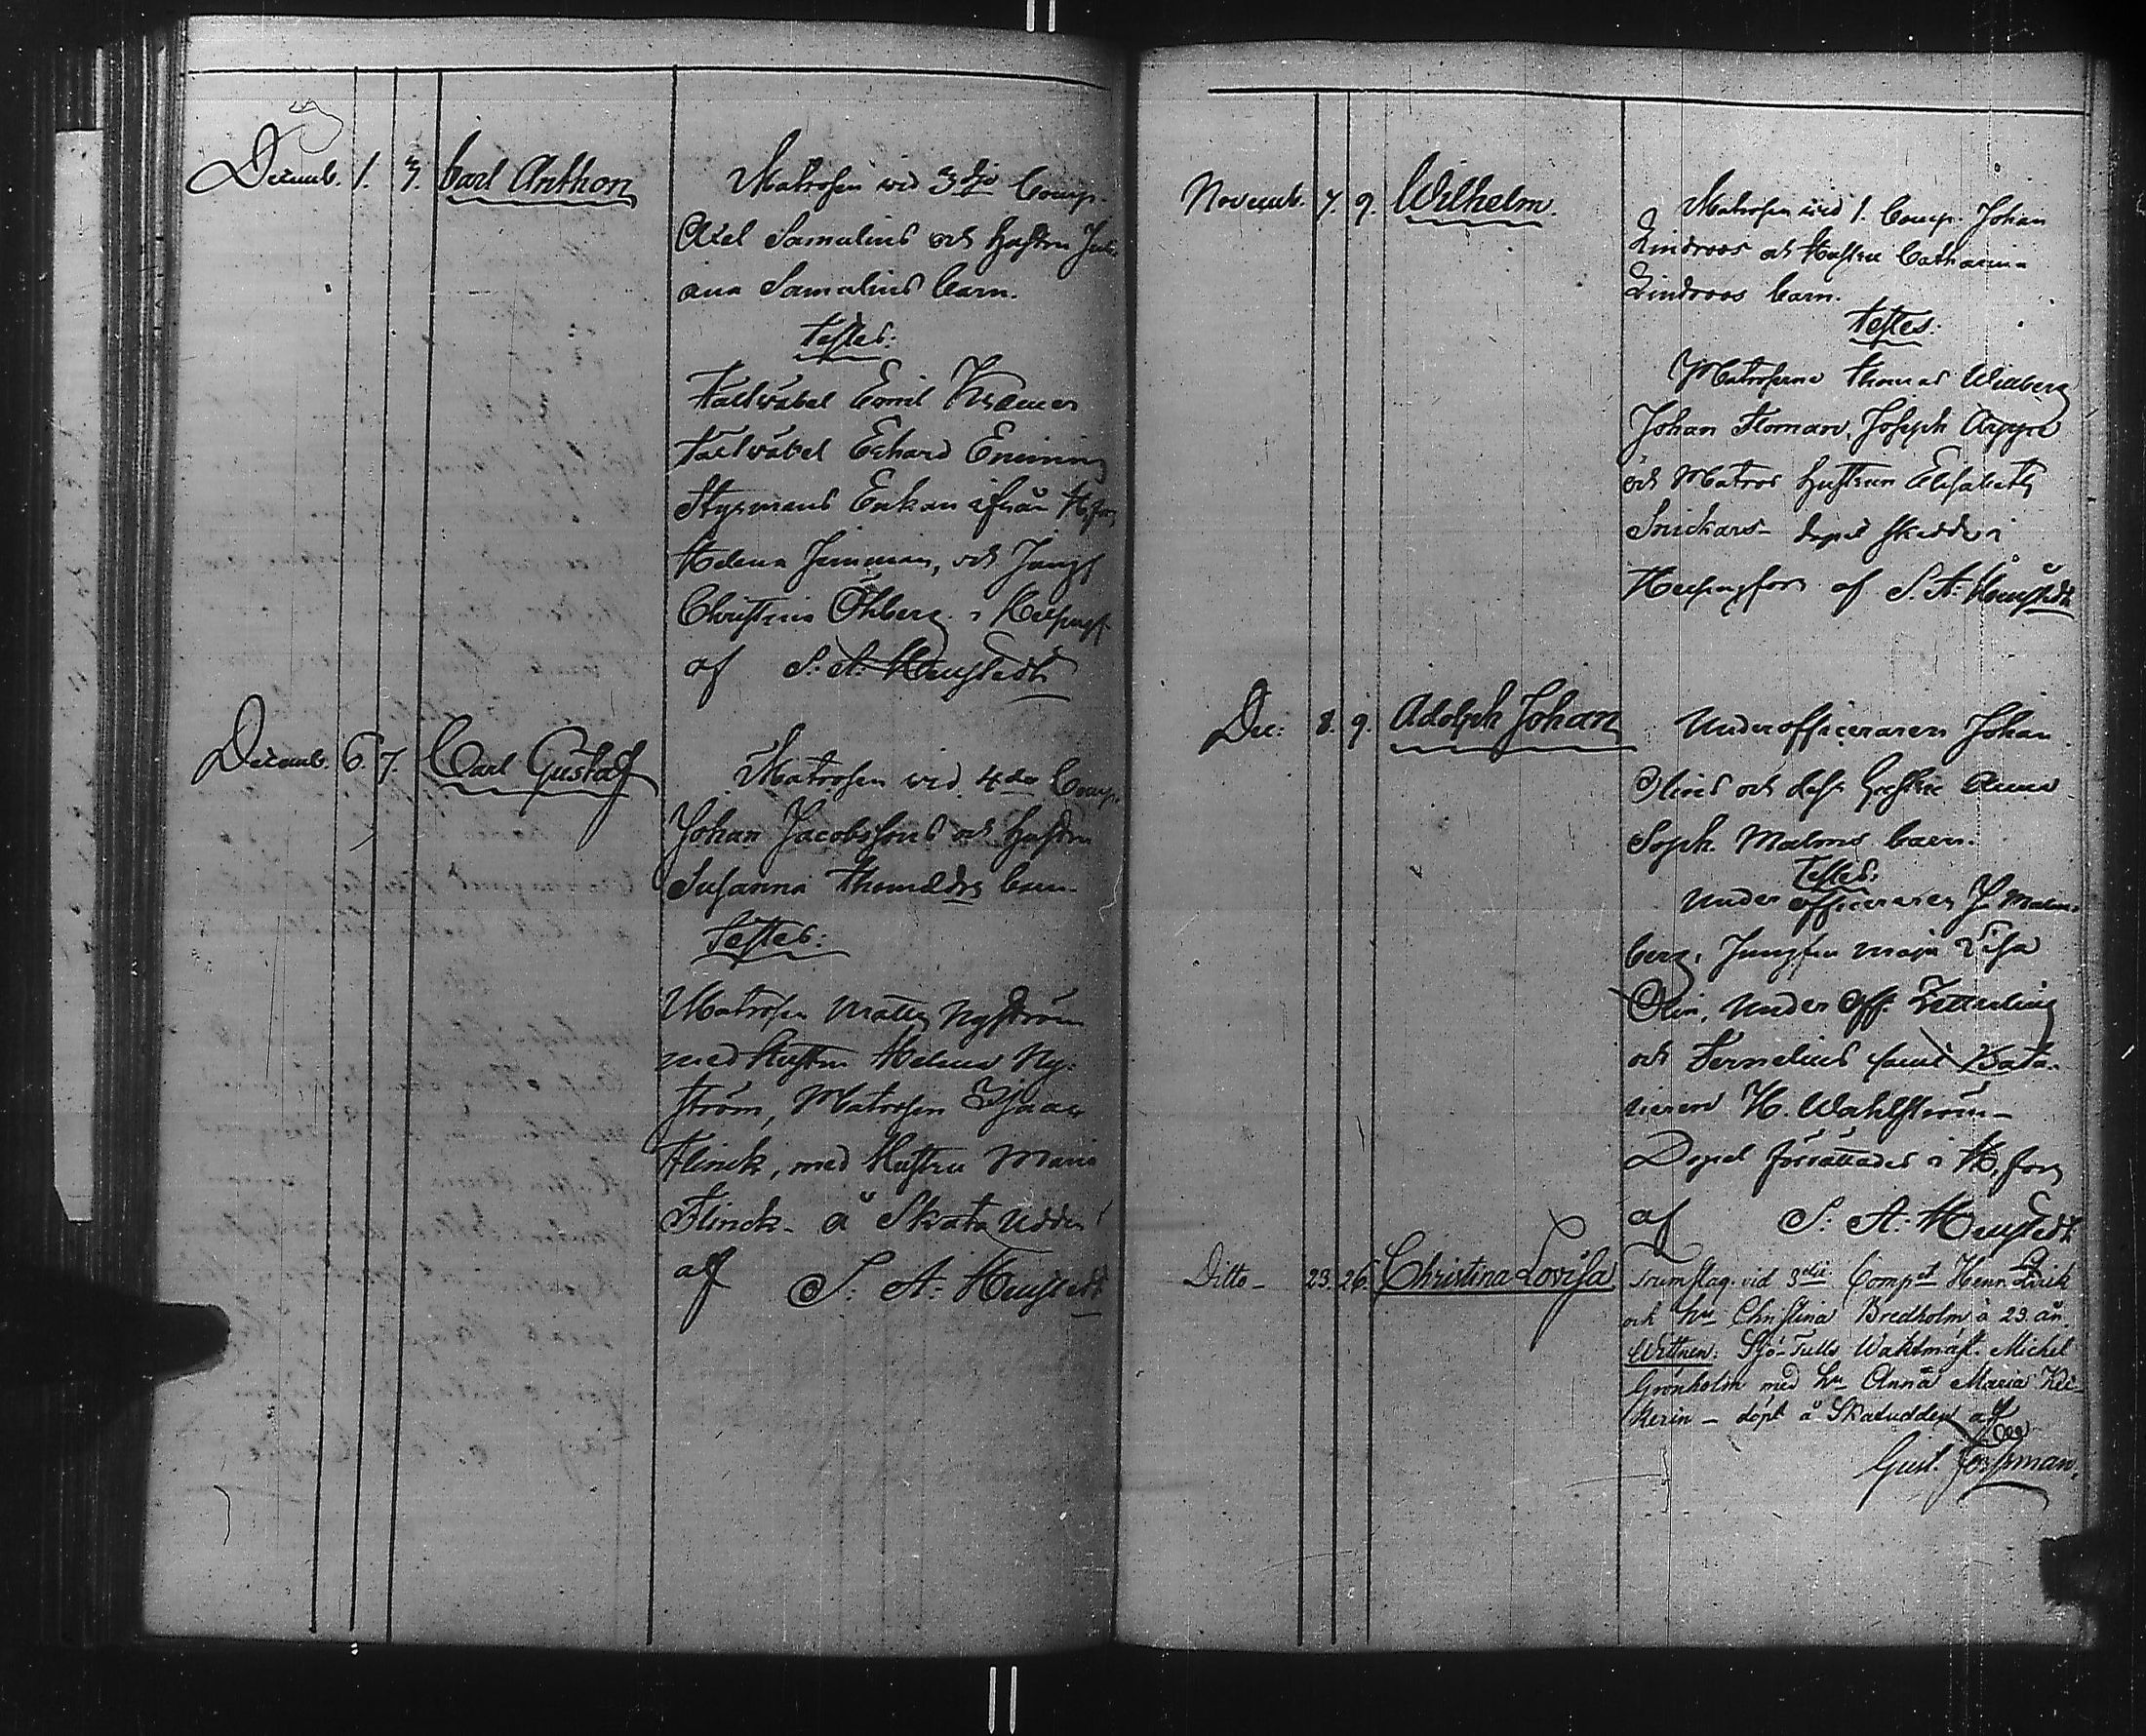 Decemb. 1. 3. Carl Anthon
Matrosen wid 3dje Comp.
Axel Samulins och Hustru Juli-
ana Samulins barn.
Testes:
Faltväbel Emil
Faltväbel Enimin
Styrmans Enkan ifrån H:fors
Helena och Jungf
Christina Öhberg i Helsingf.
af S. A. Heustedt
Decemb. 6. 7. Carl Gustaf
Matrosen wid 4de Comp.
Johan Jacobssons och Hustru
Susanna Thomædrs barn.
Testes:
Matrosen Matts Nyström
med Hustru Helena Ny-
ström, Matrosen Isaac
Flinck, med Hustru Maria
Flinck - å Skata Udden
af S. A. Heustedt
Novemb. 7. 9. Wilhelm.
Matrosen wid 1. Comp. Johan
Lindroos och Hustru Catharina
Lindroos barn.
Testes:
Matroserne Thomas Widberg
Johan Floman, Joseph
och Matros Hustrun Elisabeth
Snickars - dopet skedde i
Helsingfors af S. A. Heustedt
Dec: 8. 9. Adolph Johan
Underofficeraren Johan
Olins och dess Hustru Anna
Soph. Malms barn.
Testes:
Under officeraren J. Malm-
berg, Jungfru Maja Lisa
Olin, Under Off. Zetterling
och Fernelius samt
H. Wahlström -
Dopet förrättades i H:fors
af S. A. Heustedt
Ditto - 23. 26. Christina Lovisa
Trumslag. vid 3dje Comp:t Henr.
och hu Christina Bredholm à 23 år.
Wittnen: Sjö-Tulls Waktmäst. Michel
Grönholm med hu Anna Maria Kec-
kerin - döpt å Skatudden af
Gust. Forssman.